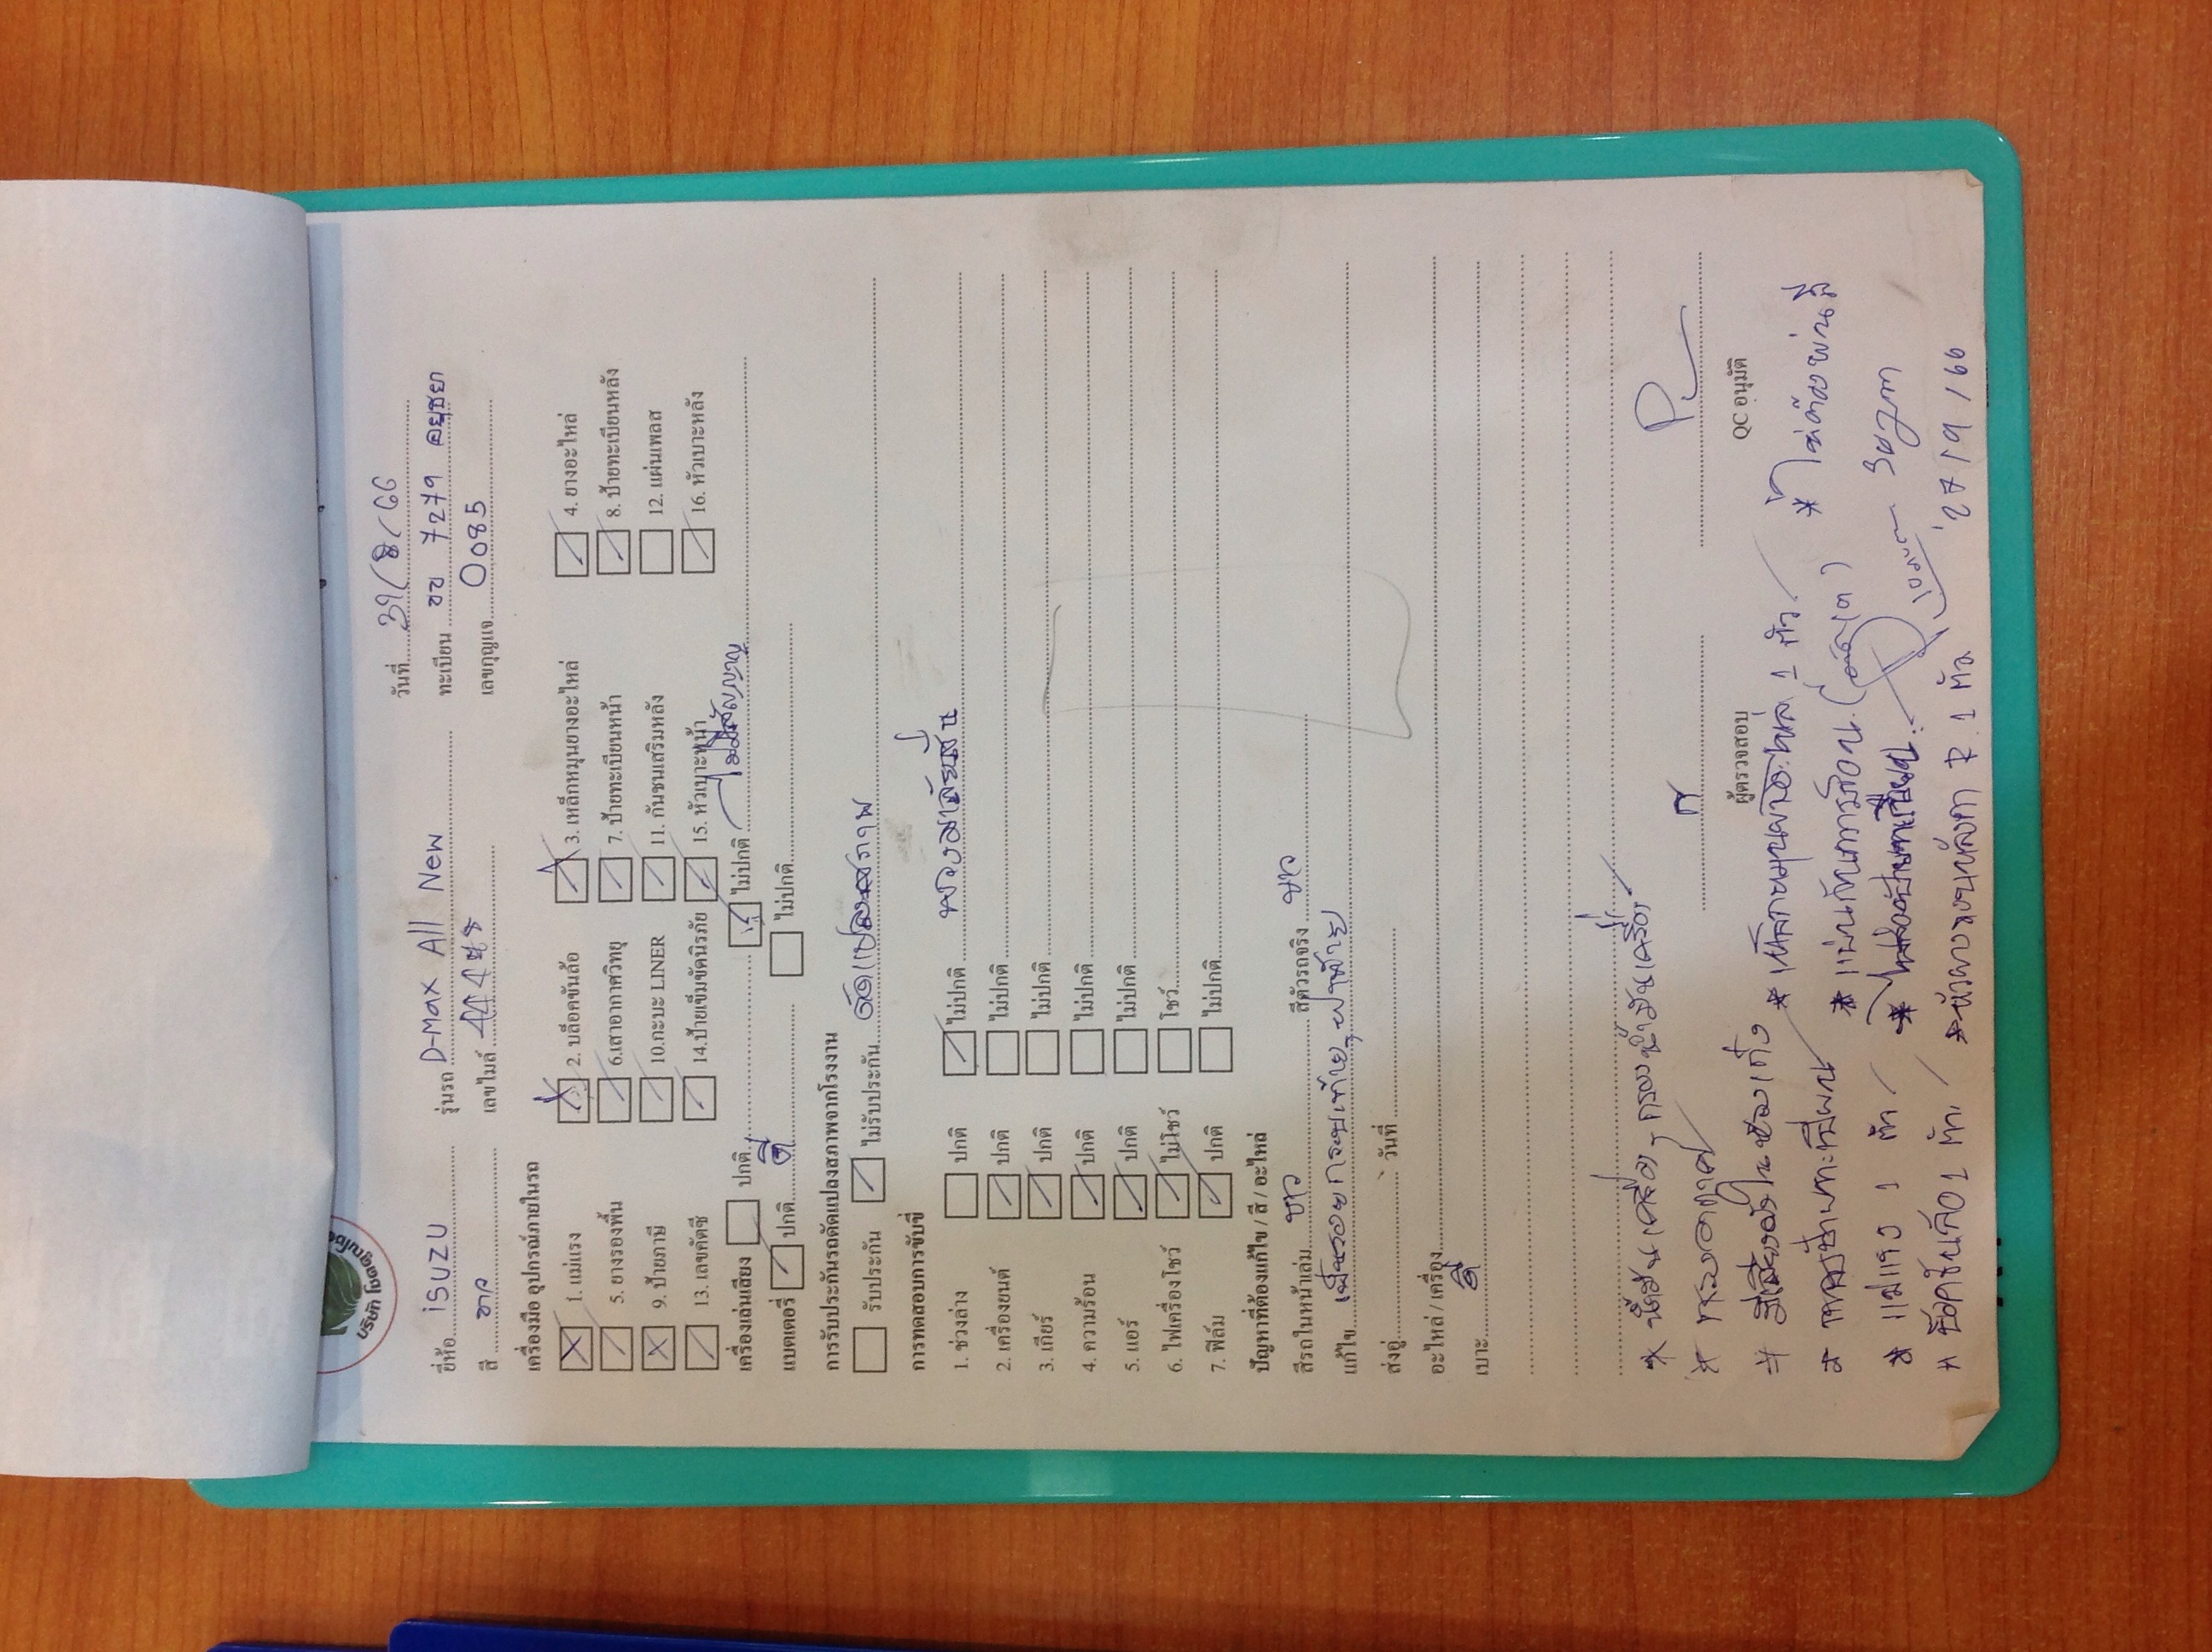 บริษัท โชคคูณ
วันที่ 31/8/66
ยี่ห้อ isuzu รุ่นรถ D-Max All New ทะเบียน ขข 7279 อยุธยา
สี ขาว เลขไมล์ เลขกุญแจ 0085
เครื่องมือ อุปกรณ์ภายในรถ
1. แม่แรง 2. บล็อคขันล้อ 3. เหล็กหมุนยางอะไหล่ 4. ยางอะไหล่
5. ยางรองพื้น 6.เสาอากาศวิทยุ 7. ป้ายทะเบียนหน้า 8. ป้ายทะเบียนหลัง
9. ป้ายภาษี 10.กะบะ LINER 11. กันชนเสริมหลัง 12. แผ่นเพลส
13. เลขคัตซี 14.ป้ายเข็มขัดนิรภัย 15. หัวเบาะหน้า 16. หัวเบาะหลัง
เครื่องเล่นเสียง ปกติ ไม่ปกติ ไม่มีสัญญาญ
แบตเตอรี่ ปกติ ดี ไม่ปกติ
การรับประกันรถดัดแปลงสภาพจากโรงงาน
รับประกัน ไม่รับประกัน ดัดแปลงสภาพ
การทดสอบการขับขี่
1. ช่วงล่าง ปกติ ไม่ปกติ พวงมาลัยสั่น
2. เครื่องยนต์ ปกติ ไม่ปกติ
3. เกียร์ ปกติ ไม่ปกติ
4. ความร้อน ปกติ ไม่ปกติ
5. แอร์ ปกติ ไม่ปกติ
6. ไฟเครื่องโชว์ ไม่โชว์ โชว์
7. ฟิล์ม ปกติ ไม่ปกติ
ปัญหาที่ต้องแก้ไข / สี / อะไหล่
สีรถในหน้าเล่ม ขาว สีตัวรถจริง ขาว
แก้ไข เป็นรอย กระบะท้าย, ฝาท้าย
ส่งอู่ วันที่
อะไหล่ / เครื่อง
เบาะ ดี
* น้ำมันเครื่อง, กรองน้ำมันเครื่อง
* กรองอากาศ
ผู้ตรวจสอบ QC อนุมัติ
* มีเสียงดังในช่องเก๋ง * เหล็กหมุนยางอะไหล่ 1 ตัว * ไม่ต้องพ่นสี
* แผ่นกันความร้อน
* แม่แรง 1 ตัว
* บล็อคขันล้อ 1 ตัว * 7. 1 ตัว 27/9/66